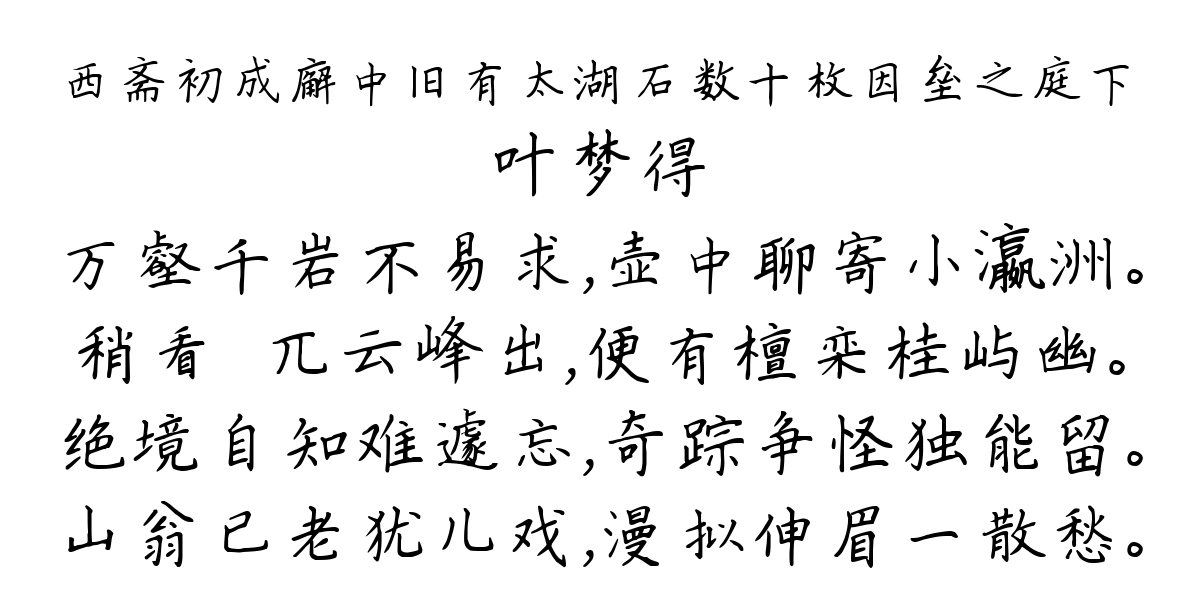 西斋初成廨中旧有太湖石数十枚因垒之庭下
叶梦得
万壑千岩不易求,壶中聊寄小瀛洲。
稍看 兀云峰出,便有檀栾桂屿幽。
绝境自知难遽忘,奇踪争怪独能留。
山翁已老犹儿戏,漫拟伸眉一散愁。